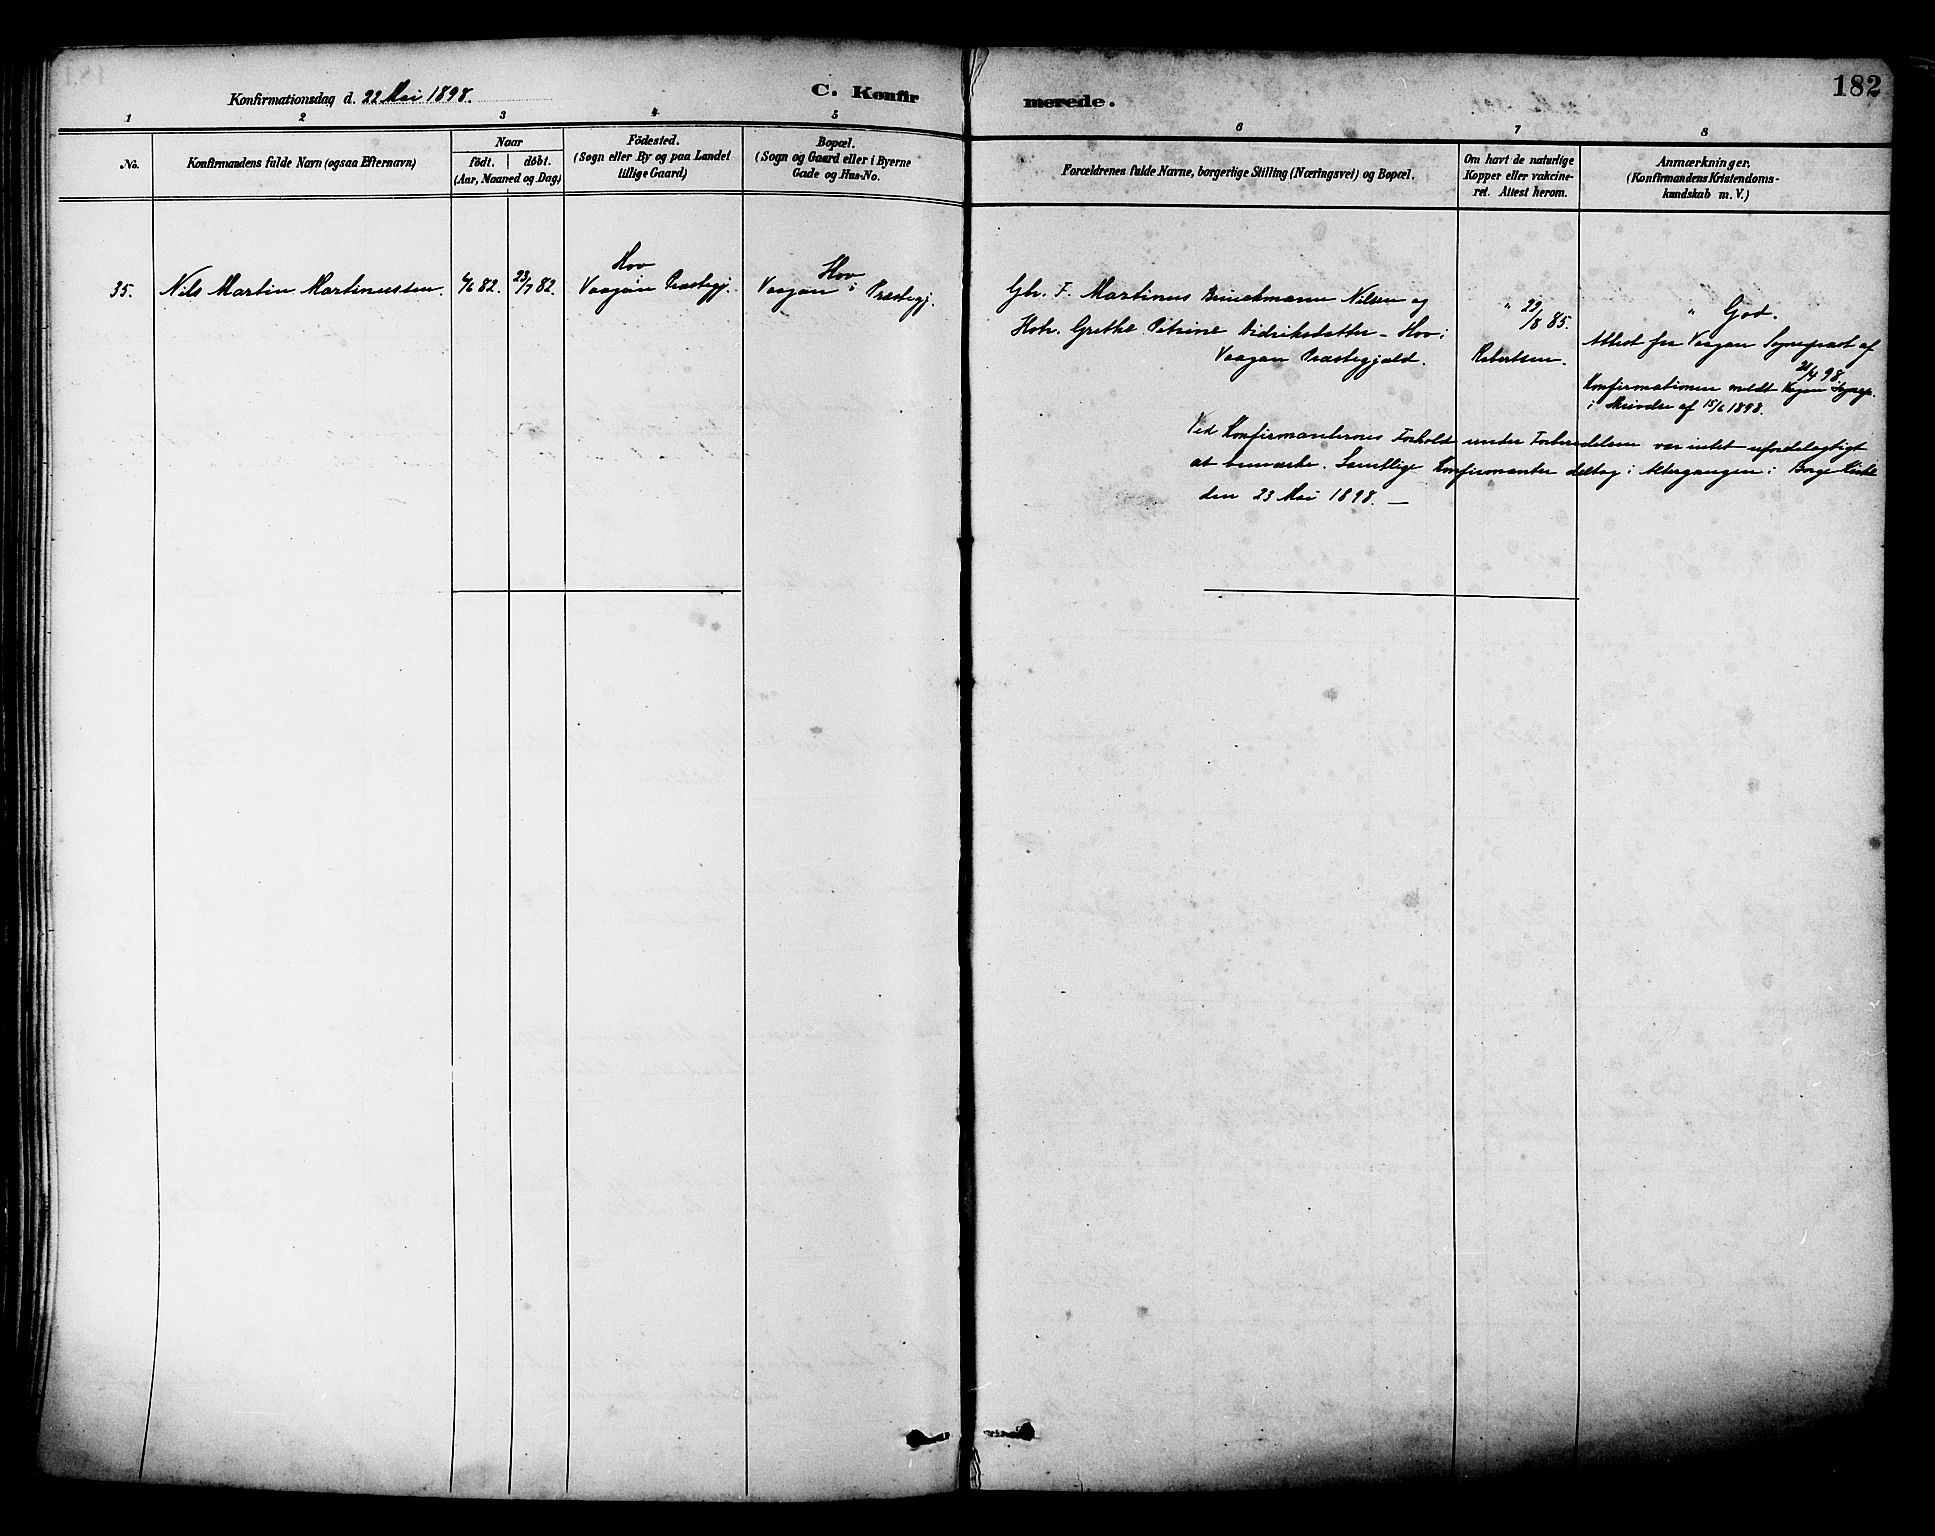 Konfirmationsdag d. 22 Mai 1898.
C. Konfir
merede.
182
1 2 3 4 5 6 7 8
No.
Konfirmandens fulde Navn (ogsaa Efternavn)
Naar
födt. döbt.
(Aar, Maaned og Dag)
Födested.
(Sogn eller By og paa Landet
tillige Gaard)
Bopæl.
(Sogn og Gaard eller i Byerne
Gade og Hus-No.
Forældrenes fulde Navne, borgerlige Stilling (Næringsvei) og Bopæl.
Om havt de naturlige
Kopper eller vakcine-
ret. Attest herom.
Anmærkninger.
(Konfirmandens Kristendoms-
kundskab m. V.)
35. Nils Martin Martinussen. 82. 23/7 82.
Hov
Vaagan Præstegj.
Hov i
Vaagan Præstegj.
Gbr. F. Martinus Brinchmann Nilsen og
Hstr. Grethe Petrine Didriksdatter - Hov i
Vaagan Præstegjæld.
" 22/8 85.
Robertsen.
" God.
Attest fra Vaagan Sognepræst af
21/4 98.
Konfirmationen meldt Vagan Sognepr.
i Skrivelse af 15/6 1898.
Ved Konfirmanternes Forhold under Forberedelsen var intet ufordelagtigt
at bemærke. Samtlige Konfirmanter deltog i Altergangen i Borge Kirke
den 23 Mai 1898. —